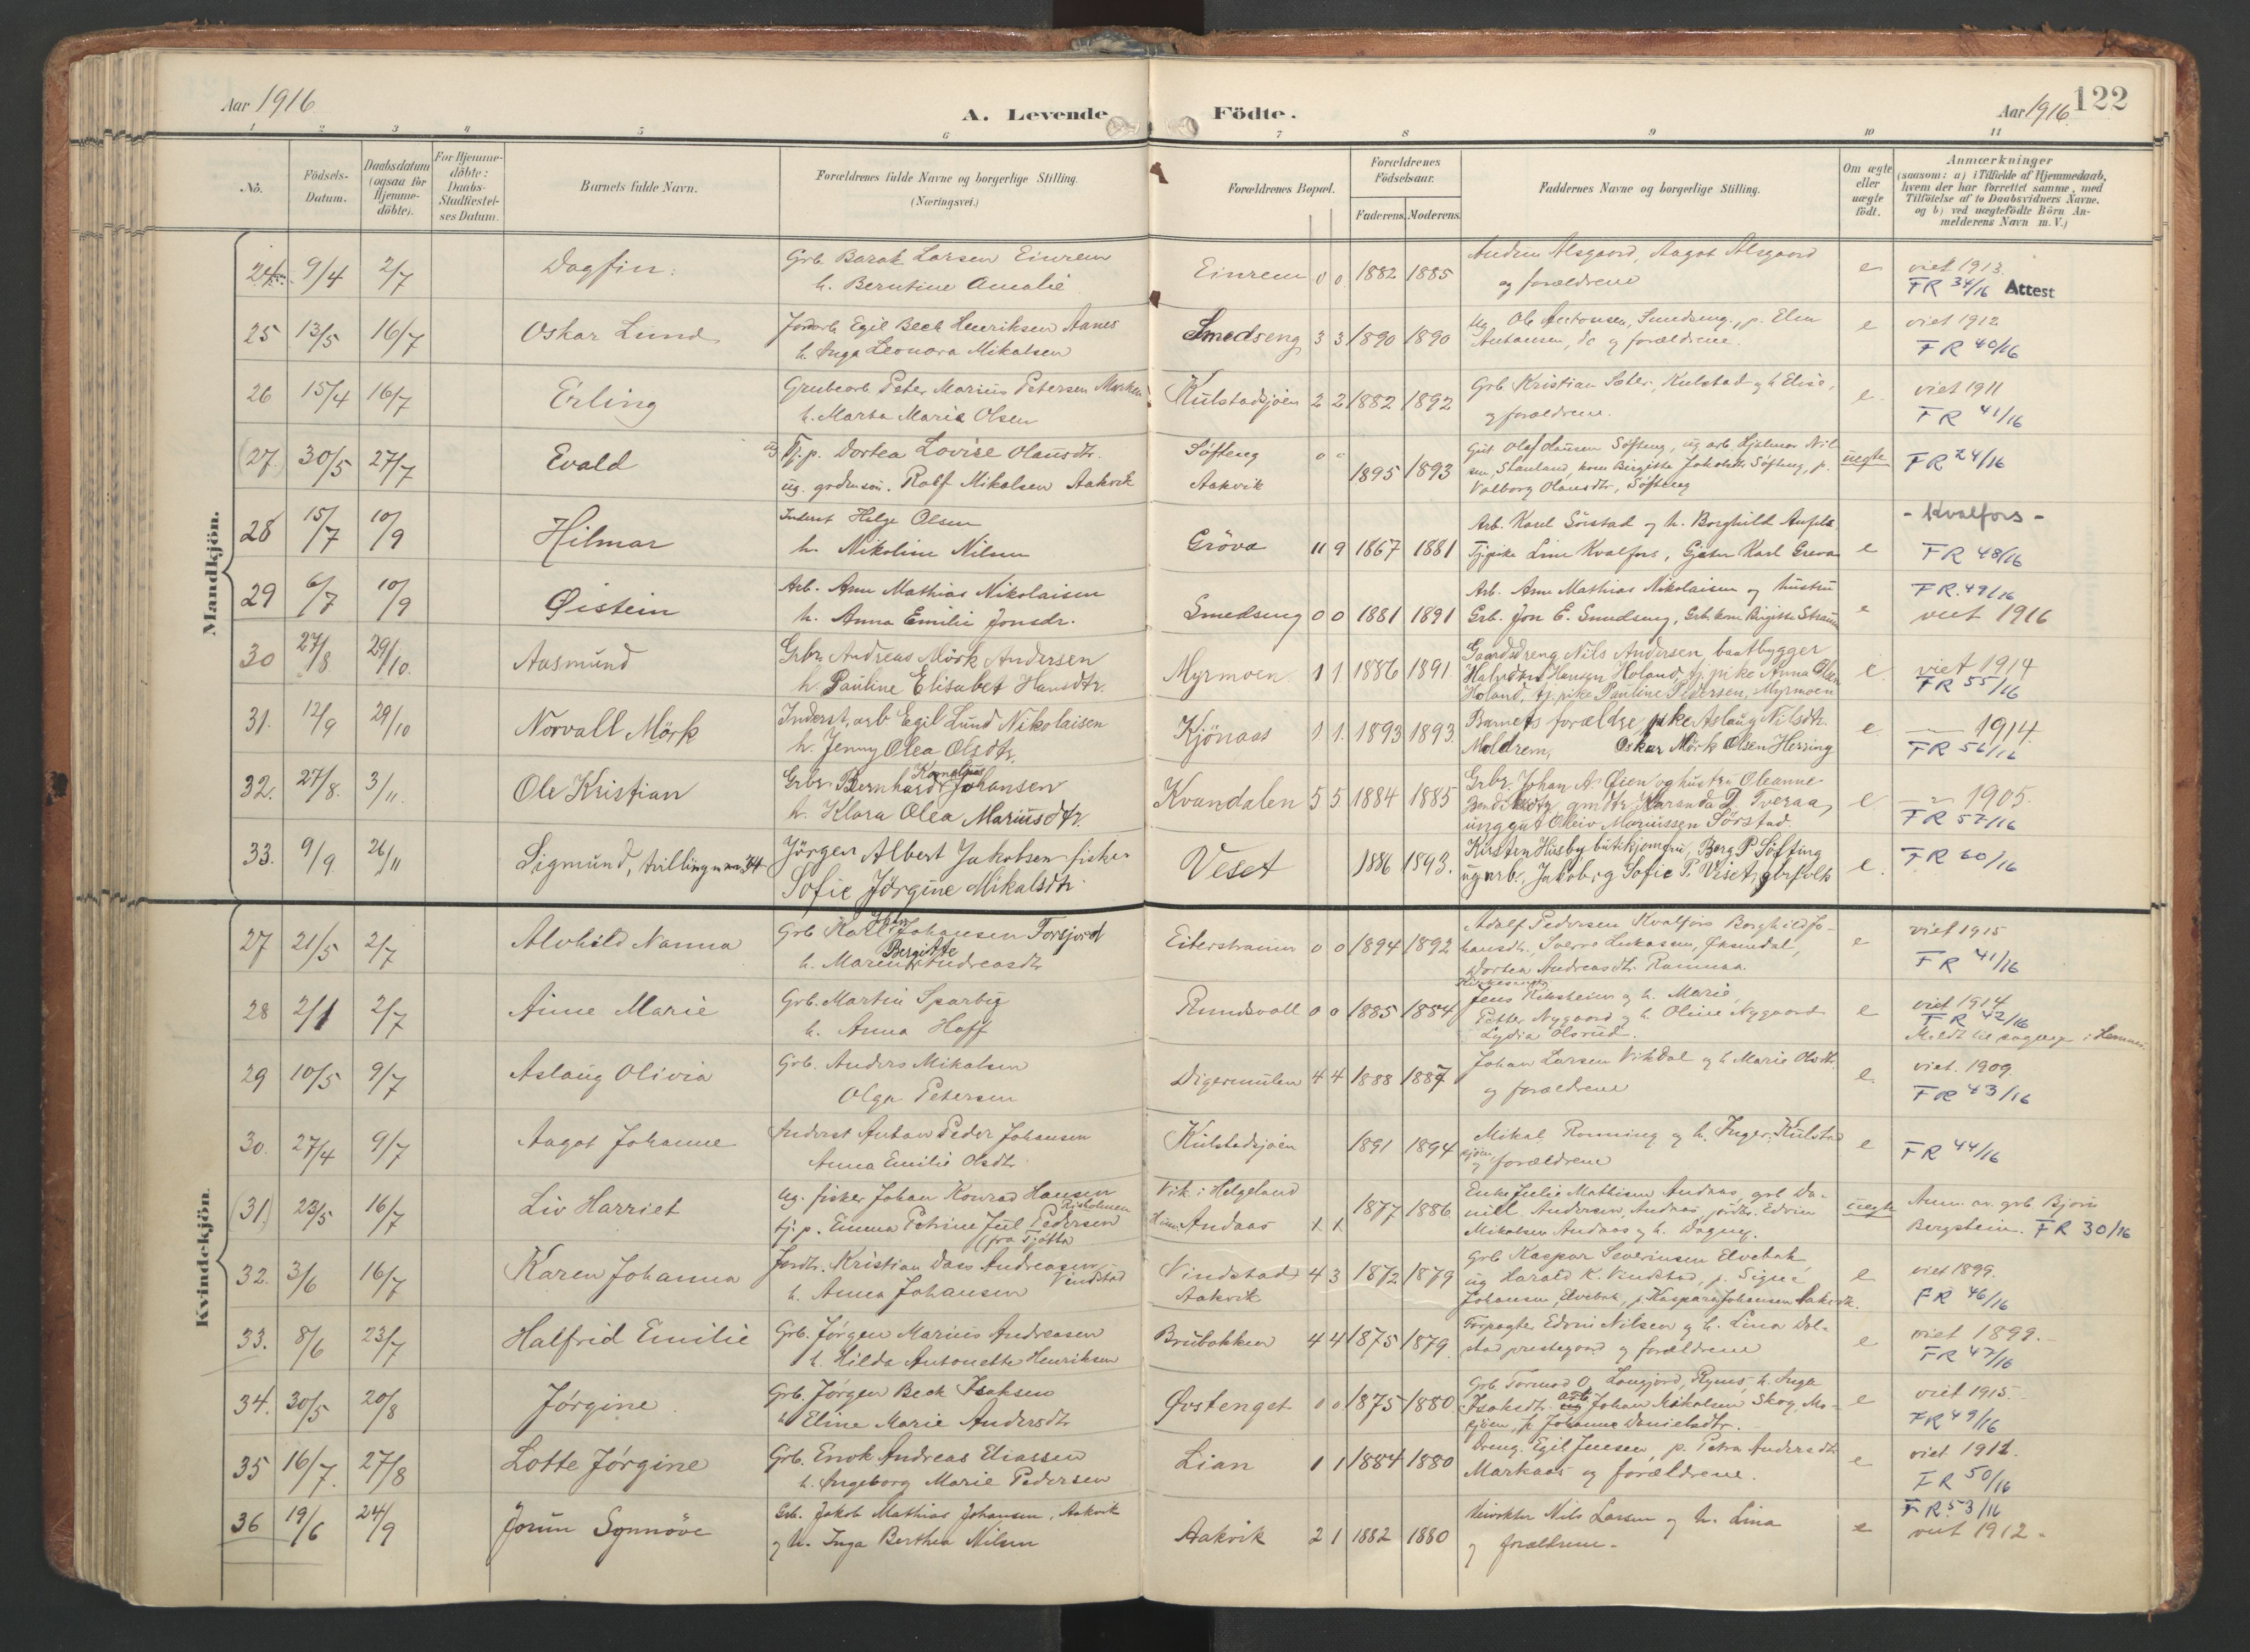 Aar 1916
A. Levende
Födte.
Aar 1916
122
1 2 3 4 5 6 7 8 9 10 11
No.
Födsels-
Datum.
Daabsdatum
(ogsaa for
Hjemme-
döbte).
For Hjemme-
döbte:
Daabs-
Stadfæstel-
ses Datum.
Barnets fulde Navn.
Forældrenes fulde Navne og borgerlige Stilling.
(Næringsvei.)
Forældrenes Bopæl.
Forældrenes
Födselsaar.
Faderens. Moderens.
Faddernes Navne og borgerlige Stilling.
Om ægte
eller
uægte
födt.
Anmærkninger
(saasom: a) i Tilfælde af Hjemmedaab,
hvem der har forrettet samme, med
Tilföielse af to Daabsvidners Navne.
og b) ved uægtefödte Börn An-
melderens Navn m. V.)
Mandkjön.
24 9/4 2/7 Dagfin. Grb. Barak Larsen Einrem Einrem 0 0 1882 1885 Alsgaard, Aagot Alsgaard e viet 1913.
h. Berntine Amalie og forældrene FR 34/16 Attest
25 13/5 16/7 Oskar Lund Egil Beck Henriksen Aanes Smedseng 3 3 1890 1890 Ug. Ole Antonsen, Smedseng, p. Elen e viet 1912
h. Inga Leonora Mikalsen Antonsen, do og forældrene. FR 40/16
26 15/4 16/7 Erling Grubearb. Peter Marius Petersen Kulstadsjøen 2 2 1882 1892 Grb. Kristian Sæter, Kulstad og h. Elise, e. viet 1911
h. Marta Maria Olsen og forældrene. FR 41/16
(27.) 30/5 27/7 Evald ug Tj. p. Dortea Lovise Olausdtr. Søfteng 0 0 1895 1893 Gut Olaf Hansen Søfteng, ug. arb. Hjalmar Nil- uegte FR 24/16
ug. grdmsøn. Rolf Mikalsen Aakvik Aakvik sen, kone Birgitte Jakobsdtr. Søfteng, p.
Valborg Olausdtr, Søfteng
28 15/7 10/9 Hilmar Inderst Helge Olsen Gröva 11 9 1867 1881 Arb. Karl Sörstad og h. Borghild e - Kvalfors -
h. Nikoline Nilsen Tjpike Line Kvalfors, Gjeter Karl Greva FR 48/16
29 6/7 10/9 Øistein Arb. Arne Mathias Nikolaisen Smedseng 0 0 1881 1891 Arb. Arne Mathias Nikolaisen og hustru e FR. 49/16
h. Anna Emilie Jonsdr. Grb. Jon E. Smedseng, Grb. kone Birgitte viet 1916
30 27/8 29/10. Aasmund Grbr. Andreas Mörk Andersen Myrmoen. 1 1 1886 1891 Gaardsdreng Nils Andersen, baatbygger e. viet 1914
h. Pauline Elisabet Hansdtr. Halvdan Hansen Holand, tj. pike Anna Olsen FR 55/16
Holand, tj. pike Pauline Pedersen, Myrmoen
31. 12/9 29/10 Norvall Mörk Inderst, arb Egil Lund Nikolaisen Kjönaas 1 1. 1893 1893. Barnets forældre, pike Aslaug Nilsdtr. e. 1914.
h. Jenny Olea Olsdtr. Moldrem, Oskar Mörk Olsen Herring FR 56/16
32. 27/8. 3/11. Ole Kristian Grbr. Bernhard Kornelius Johansen Kvandalen 5 5 1884 1885 Grbr. Johan A. Øien og hustru Oleanne e - " - 1905.
h. Klara Olea Mariusdtr. gmdtr D. Tveraa, FR 57/16
unggut Oleiv Mariussen Sörstad.
33. 9/9 26/11 Sigmund, tvilling m. nr. 34 Jörgen Albert Jakobsen fisker Veset 1886 1893. Kirsten Husby butikjomfru, Berg P Söfting e. FR 60/16
Sofie Jörgine Mikalsdtr. ug arb. Jakob og Sofie P. Veset, gbrfolk
Kvindekjön.
27 21/5 2/7 Alvhild Nanna Grb Karl John Johansen Forsjord Eiterstraum 0 0 1894 1892 Adolf Pedersen Kvalfors Borghild Jo- e viet 1915
h. Maren Bergitte Andreasdtr hansdtr., Sverre Lukassen, Øksendal, FR 41/16
Dortea Andreasdtr. Ramnaa.
28 2/1 2/7 Anne Marie Grb. Martin Sparbig Rundvoll 0 0 1885 1884 Jens Riksheim og h. Marie, e viet 1914
h. Anna Hoff Petter Nygaard og h. Oline Nygaard FR 42/16
Lydia Olsrud. Meldt til i Hemnes.
29 10/5 9/7 Aslaug Olivia Grb. Anders Mikalsen Digermulen 4 4 1888 1887 Johan Larsen Vikdal og h Marie Olsdtr. e. viet. 1909.
Olga Petersen og forældrene FR 43/16
30. 27/4 9/7 Aagot Johanne Inderst Antan Peder Johansen Kulstadsjøen 1891 1894 Mikal Ronning og h. Inger, Kulstad e FR 44/16
Anna Emilie Olsdtr. sjøen, og forældrene
(31) 23/5 16/7 Liv Harriet Ug. fisker Johan Konrad Hansen Vik i Helgeland 1877 1886 Enke Julie Mathisen Andaas, grb Da- uegte Anm. av grb Bjørn
tj. p. Emma Petrine Juel Pedersen Risholmen Andaas 1. 1. niel Andersen, Andaas, jordbr. Edvin Bergstein. FR 30/16
(fra Tjøtta Mikalsen Andaas og h. Dagny.
32. 3/6 16/7 Karen Johanna Jordbr. Kristian Dass Andreasen Vindstad Vindstad 4 3 1872 1879 Grb Kaspar Severinsen Elvebak, e viet 1899.
h. Anna Johansen Aakvik ug Harald K. Vindstad, p. Signe FR 46/16
Johansen, Elvebak, p. Kaspara Johansen Bakedtr.
33. 8/6 23/7 Halfrid Emilie Grb. Jørgen Marius Andreasen Brubakken 4 4 1875 1879 Forpagter Edvin Nilsen og h. Lina Dol- e viet 1899.
h. Hilda Antonette Henriksen stad prestegaard og forældrene FR 47/16
34. 30/5 20/8 Jørgine. Grb. Jørgen Beck Isaksen Øvstenget 0 0 1875 1880 Grb. Tormod O, Langjord, Rynes, h. Inga e viet 1915.
h Eline Marie Andersdtr Isaksdtr. arb. Johan Mikalsen Skog, Mo- FR 49/16
sjøen, p. Johanne Danielsdtr.
35 16/7. 27/8 Lotte Jørgine Grb. Enok Andreas Eliassen Lian 1 1 1884 1880 Dreng. Egil Jensen, p. Petra Andersdtr e viet 1912.
h. Ingeborg Marie Pedersen Markaas og forældrene. FR 50/16
36 19/6 24/9 Jorun Synnöve Grb. Jakob Mathias Johansen, Aakvik Aakvik 2 1 1882 1880 Nils Larsen og h. Lina e FR. 53/16
og h. Inga Berthea Nilsen og forældrene. viet 1912.